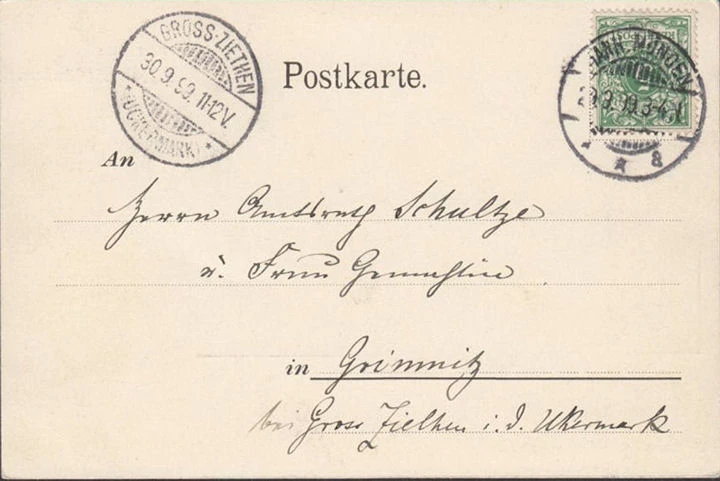 GROSS-ZIETHEN
30.9.99.11-12V.
* (UCKERMARK) *
HANN. MÜNDEN
9.99.3-4
* a
Postkarte.
An
Herrn Amtsrath Schultze
u. Frau Gemahlin
in Grimnitz
bei Gross Ziethen i. d. Ukermark